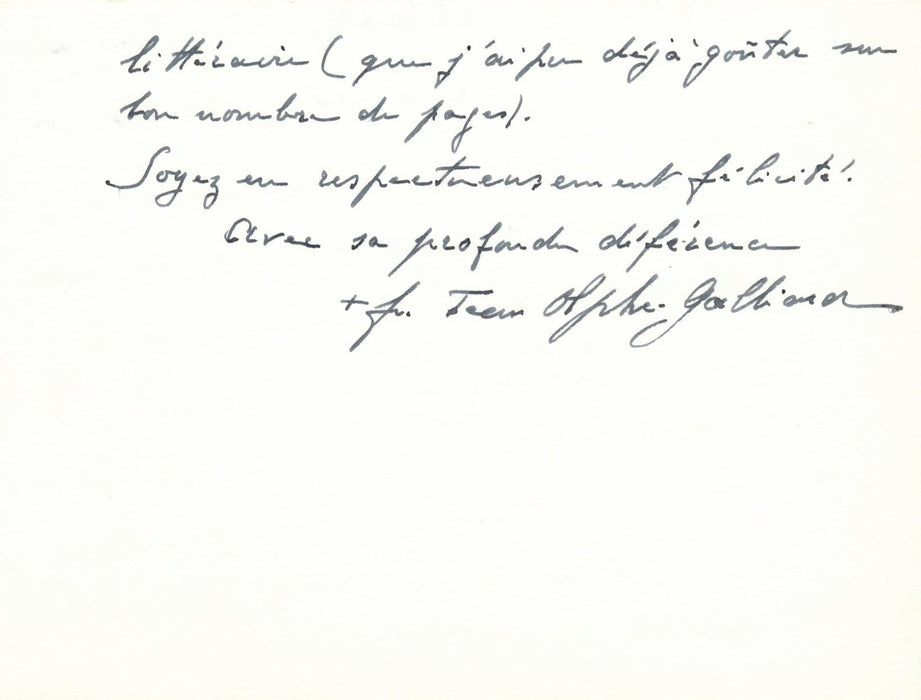 littéraire (que j'ai pu déjà goûter sur
bon nombre de pages).
Soyez en respectueusement félicité.
Avec sa profonde déférence
+ fr. Jean Olphe-Galliard